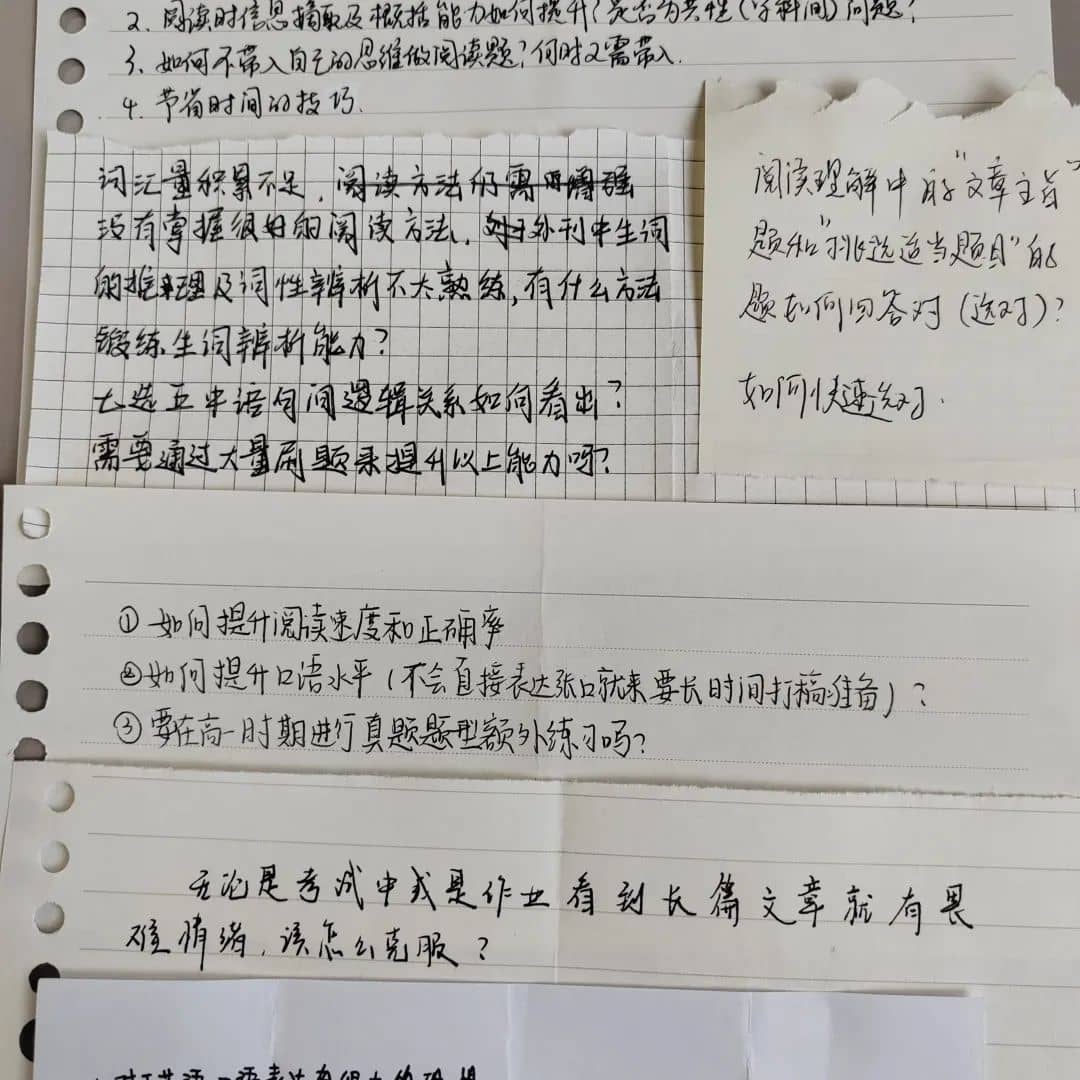 2. 阅读时信息摘取及概括能力如何提升?是否为共性(学科间)问题?
3. 如何不带入自己的思维做阅读题?何时又需带入.
4. 节省时间的技巧.
词汇量积累不足,阅读方法仍需
没有掌握很好的阅读方法,对于外刊中生词
的推理及词性辨析不大熟练,有什么方法
锻练生词辨析能力?
七选五中语句间逻辑关系如何看出?
需要通过大量刷题来提升以上能力吗?
阅读理解中的"文章主旨"
题和"挑选适当题目"的
题如何回答对(选对)?
如何快速选对.
①如何提升阅读速度和正确率
②如何提升口语水平(不会直接表达张口就来要长时间打稿准备)?
③要在高一时期进行真题题型额外练习吗?
无论是考试中或是作业看到长篇文章就有畏
难情绪,该怎么克服?